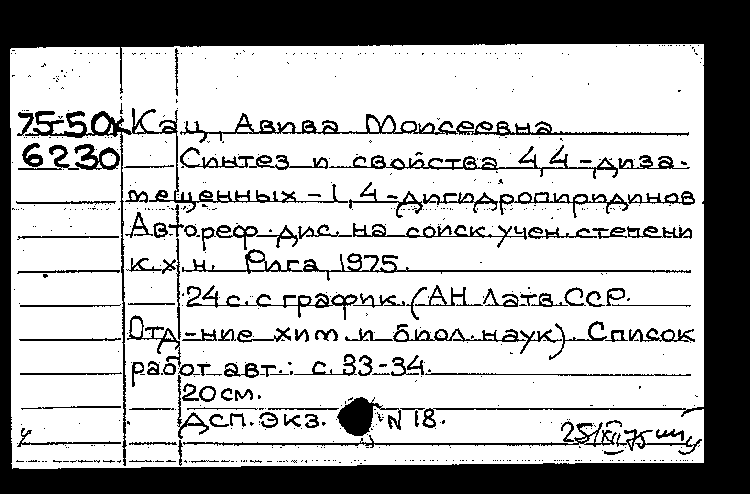 75-50к Кац, Авива Моисеевна
6230 Синтез и свойства 4,4-диза-
мещенных-1,4-дигидропиридинов.
Автореф. дис. на соиск. учен. степени
к.х.н. Рига, 1975.
24 с. с график. (АН Латв. ССР.
Отд-ние хим. и биол. наук). Список
работ авт.: с. 33-34.
20 см.
ДСП. Экз. N 18.
25/XII 75